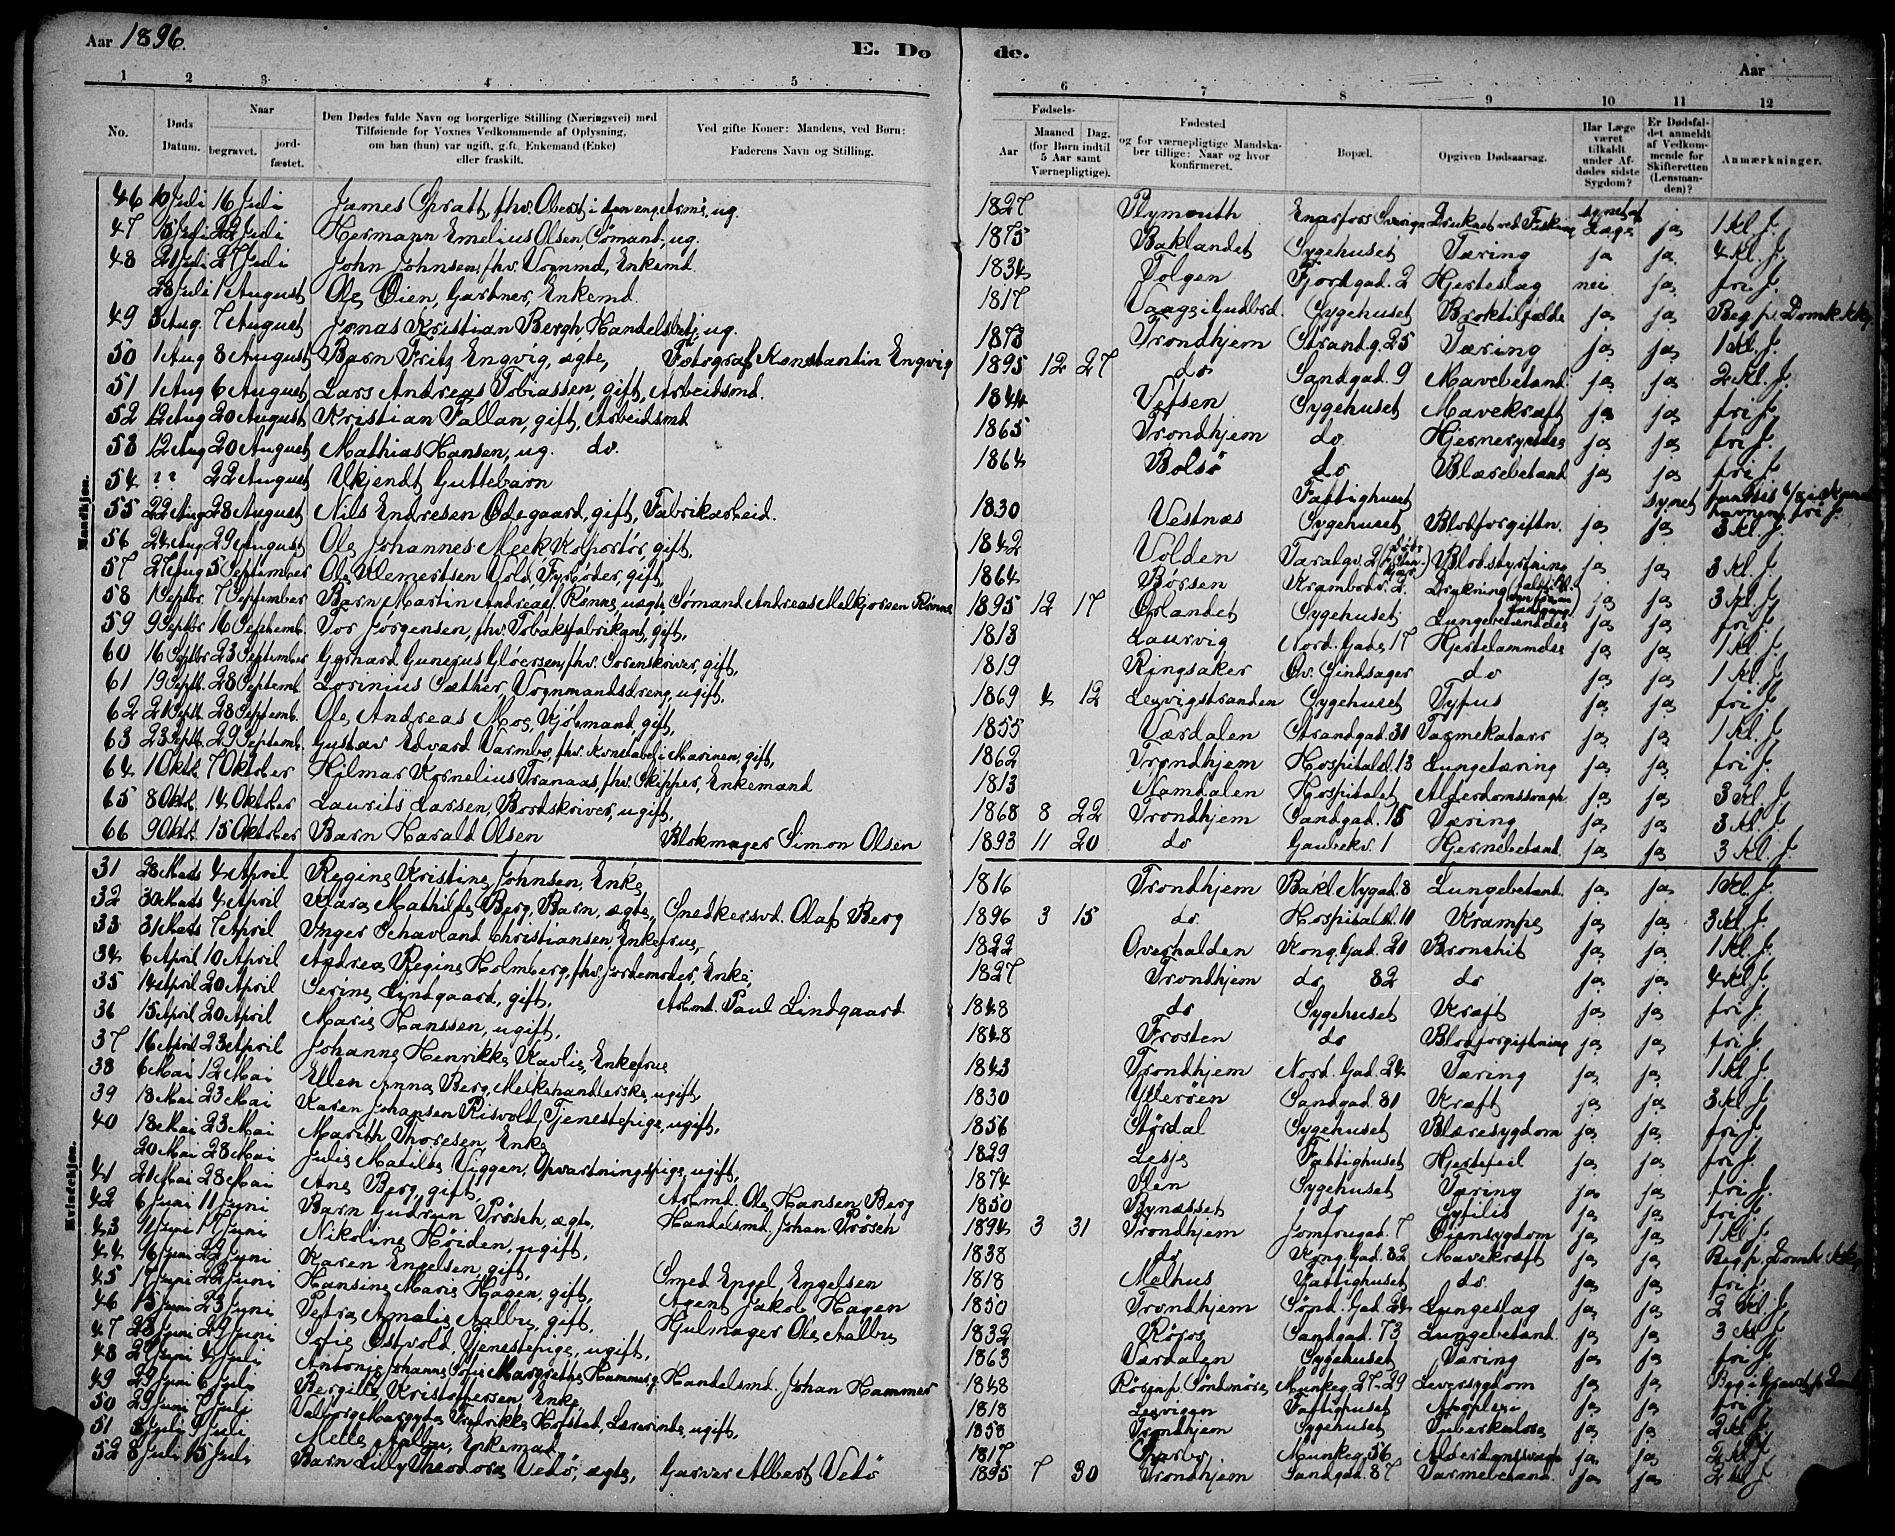 Aar 1896.
E. Dø
de.
Aar
1 2 3 4 5
6 7 8 9 10 11 12
No.
Døds Datum.
Naar
begravet.
jordfæstet.
Den Dødes fulde Navn og borgerlige Stilling (Næringsvei) med
Tilføiende for Voxnes Vedkommende af Oplysning,
om han (hun) var ugift, gift, Enkemand (Enke)
eller fraskilt.
Ved gifte Koner: Mandens, ved Børn:
Faderens Navn og Stilling.
Fødsels-
Aar
Maaned Dag.
(for Børn indtil
5 Aar samt
Værnepligtige).
Fødested
og for værnepligtige Mandskaber tillige: Naar og hvor
konfirmeret.
Bopæl.
Opgiven Dødsaarsag.
Har Læge
været
tilkaldt
under Afdødes sidste
Sygdom?
Er Dødsfaldet anmeldt
af Vedkommende for
Skifteretten
(Lensmanden)?
Anmærkninger.
Mandkjøn.
46 10 Juli 16 Juli James Spratt, fhv. Oberst i den eng. Arme, ug. 1827 Plymouth Enafors Sverige Druknet ved Fiskeri synet af Læge ja 1 Kl. J.
47 15 Juli 22 Juli Hermann Emelius Olsen, Sømand, ug. 1875 Baklandet Sygehuset Tæring ja ja 4 Kl. J.
48 21 Juli 27 Juli John Johnsen, fhv. Vognmd, Enkemd. 1834 Tolgen Fjordgad. 2 Hjerteslag nei ja fri J.
28 Juli 1 August Ole Øien, Gartner, Enkemd. 1817 Vaage i Gudbrd. Sygehuset Broktilfælde ja ja Beg. p. Domk. Kkg.
49 3 Aug. 7 August Jonas Kristian Bergh, Handelsbetj, ug. 1873 Trondhjem Strandg. 25 Tæring ja ja 1 Kl. J.
50 1 Aug 8 August Barn Fritz Engvig, ægte, Fotograf Konstantin Engvig 1895 12 27 do Sandgad. 9 Mavebetænd. ja ja 2 Kl. J.
51 1 Aug 6 August Lars Andreas Tobiassen, gift, Arbeidsmd. 1844 Vefsen Sygehuset Mavekræft ja ja fri J.
52 12 Aug 20 August Kristian Fallan, gift, Arbeidsmd 1865 Trondhjem do Hjernesygdom ja ja fri J.
53 12 Aug 20 August Mathias Hansen, ug. do. 1864 Bolsø do Blærebetænd ja ja fri J.
54 ? ? 22 August Ukjendt Guttebarn Fattighuset synet
55 22 Aug 28 August Nils Endresen Ødegaard, gift, Fabrikarbeid. 1830 Vestnæs Sygehuset Blodforgiftn. ja ja fri J.
56 24 Aug 29 August Ole Johannes Meek Kolportør, gift, 1842 Volden Blodstyrtning ja ja 3 Kl. J.
57 27 Aug 5 September Ole Klemertsen Vold, Fyrbøder, gift, 1864 Børsen Krambodv. 2. Drukning ja ja 3 Kl. J.
58 1 Septbr. 7 September Barn Martin Andreas Rønne, uægte Sømand Andreas Melkjorsen Rønne 1895 12 17 Ørlandet Sygehuset Lungebetændelse ja ja fri J.
59 9 Septbr 16 Septemb. Tor Jørgensen, fhv. Tobaksfabrikant, gift, 1813 Laurvig Nord. Gade 17 Hjertelammelse ja ja 1 Kl. J.
60 16 Septbr 23 September Gerhard Gunerus Gløersen, fhv. Sorenskriver, gift, 1819 Ringsaker Øv. Singsager do ja ja 1 Kl. J.
61 19 Septb. 28 Septemb. Lorinius Sæther, Vognmandsdreng, ugift, 1869 4 12 Lexvigstranden Sygehuset Tyfus ja ja fri J.
62 21 Septb. 28 Septemb. Ole Andreas Moe, Kjøbmand, gift, 1855 Værdalen Strandgad. 31 Tarmekatarr ja ja 1 Kl. J.
63 23 Septb. 29 Septemb. Gustav Edvard Varmbo, fhv. Konstabel i Marinen, gift, 1862 Trondhjem Hospitalsl. 13 Lungetæring ja ja fri J.
64 1 Oktb. 7 Oktober Hilmar Kornelius Tranaas, fhv. Skipper, Enkemand 1813 Namdalen Hospitalet Alderdomssvagh. ja ja 3 Kl. J.
65 8 Oktb. 14 Oktober Laurits Larsen, Bordskriver, ugift, 1868 8 22 Trondhjem Sandgad. 15 Tæring ja ja 3 Kl. J.
66 9 Oktb. 15 Oktober Barn Harald Olsen Blokmager Simon Olsen 1893 11 20 do Gaubekv. 1 Hjernebetænd. ja ja 3 Kl. J.
Kvindekjøn.
31 28 Mats 4 April Regine Kristine Johnsen, Enke, 1816 Trondhjem Bakl. Nygad. 8 Lungebetænd. ja ja 1 Kl. J.
32 30 Mats 4 April Klara Mathilde Berg, Barn, ægte, Snedkersvd. Olaf Berg 1896 3 15 do Hospitalsl. 10 Krampe ja ja 3 Kl. J.
33 31 Mats 7 April Inger Schavland Christiansen, Enkefrue, 1822 Overhalden Kong. Gad. 20 Bronchit ja ja 1 Kl. J.
34 6 April 10 April Andrea Regine Holmberg, fhv. Jordemoder, Enke, 1827 Trondhjem do 82 do ja ja 4 Kl. J.
35 14 April 20 April Serine Lindgaard, gift, Arbmd. Paul Lindgaard 1848 do Sygehuset Kræft ja ja fri J.
36 15 April 20 April Marie Hanssen, ugift, 1848 Frosten do Blodforgiftning ja ja fri J.
37 16 April 23 April Johanne Henrikke Kavlie, Enkefrue 1843 Trondhjem Nord. Gad. 24 Tæring ja ja 1 Kl. J.
38 6 Mai 12 Mai Ellen Anna Berg, Melkehandlerske, ugift, 1830 Ytterøen Sandgad. 31 Kræft ja ja 3 Kl. J.
39 18 Mai 23 Mai Karen Johansen Risvold, Tjenestepige, ugift, 1856 Størdal Sygehuset Blæresygdom ja ja fri J.
40 18 Mai 23 Mai Marith Thoresen, Enke 1829 Lesje Fattighuset Hjertefeil ja ja fri J.
20 Mai 28 Mai Julie Matilde Viggen, Opvartningspige, ugift, 1874 Sygehuset Tæring ja ja fri J.
41 21 Mai 28 Mai Ane Berg, gift, Arbmd. Ole Hansen Berg 1850 Bynæsset do Syfilis ja ja fri J.
42 6 Juni 11 Juni Barn Gudrun Prøsch, ægte, Handelsmd. Johan Prøsch 1894 3 31 Trondhjem Jomfrugad. 7 Øiensygdom ja ja 1 Kl. J.
43 11 Juni 17 Juni Nikoline Høiden, ugift, 1838 do Kong. Gad. 82 Mavekræft ja ja Beg. p. Domk. Kkg.
44 16 Juni 22 Juni Karen Engelsen, gift, Smed Engel Engelsen 1818 Malhus Fattighuset do. ja ja fri J.
45 17 Juni 22 Juni Hansine Marie Hagen, gift, Agent Jakob Hagen 1850 Trondhjem Sønd. Gad. 24 Lungeslag ja ja 2 Kl. J.
46 15 Juni 23 Juni Petra Amalie Aalbu, gift, Hjulmager Ole Aalbu 1832 Røros Sandgad. 73 Lungebetænd. ja ja 3 Kl. J.
47 23 Juni 29 Juni Sofie Østvold, Tjenestepige, ugift, 1863 Værdalen Sygehuset Tæring ja ja fri J.
48 27 Juni 4 Juli Antonie Johanne Sofie Margrethe Hammer, g. Handelsmd. Johan Hammer 1848 Røsen p. Søndmøre Munkeg. 27-29 Leversygdom ja ja
49 29 Juni 6 Juli Bergitte Kristoffersen, Enke 1818 Lexvigen Fattighuset Apoplexi ja ja fri J.
50 29 Juni 7 Juli Valborg Margrethe Fredrikke Hofstad, Lærerinde, ugift, 1858 Trondhjem Sygehuset Tuberkulose ja ja 2 Kl. J.
51 3 Juli 9 Juli Melle Aalbu, Enkemad. 1817 Munkeg. 56 Alderdomssvagh. ja ja 2 Kl. J.
52 8 Juli 15 Juli Barn Lilly Theodora Vedø, ægte, Garver Albert Vedø 1895 7 30 Trondhjem Sandgad. 87 Tarmebetænd. ja ja 2 Kl. J.